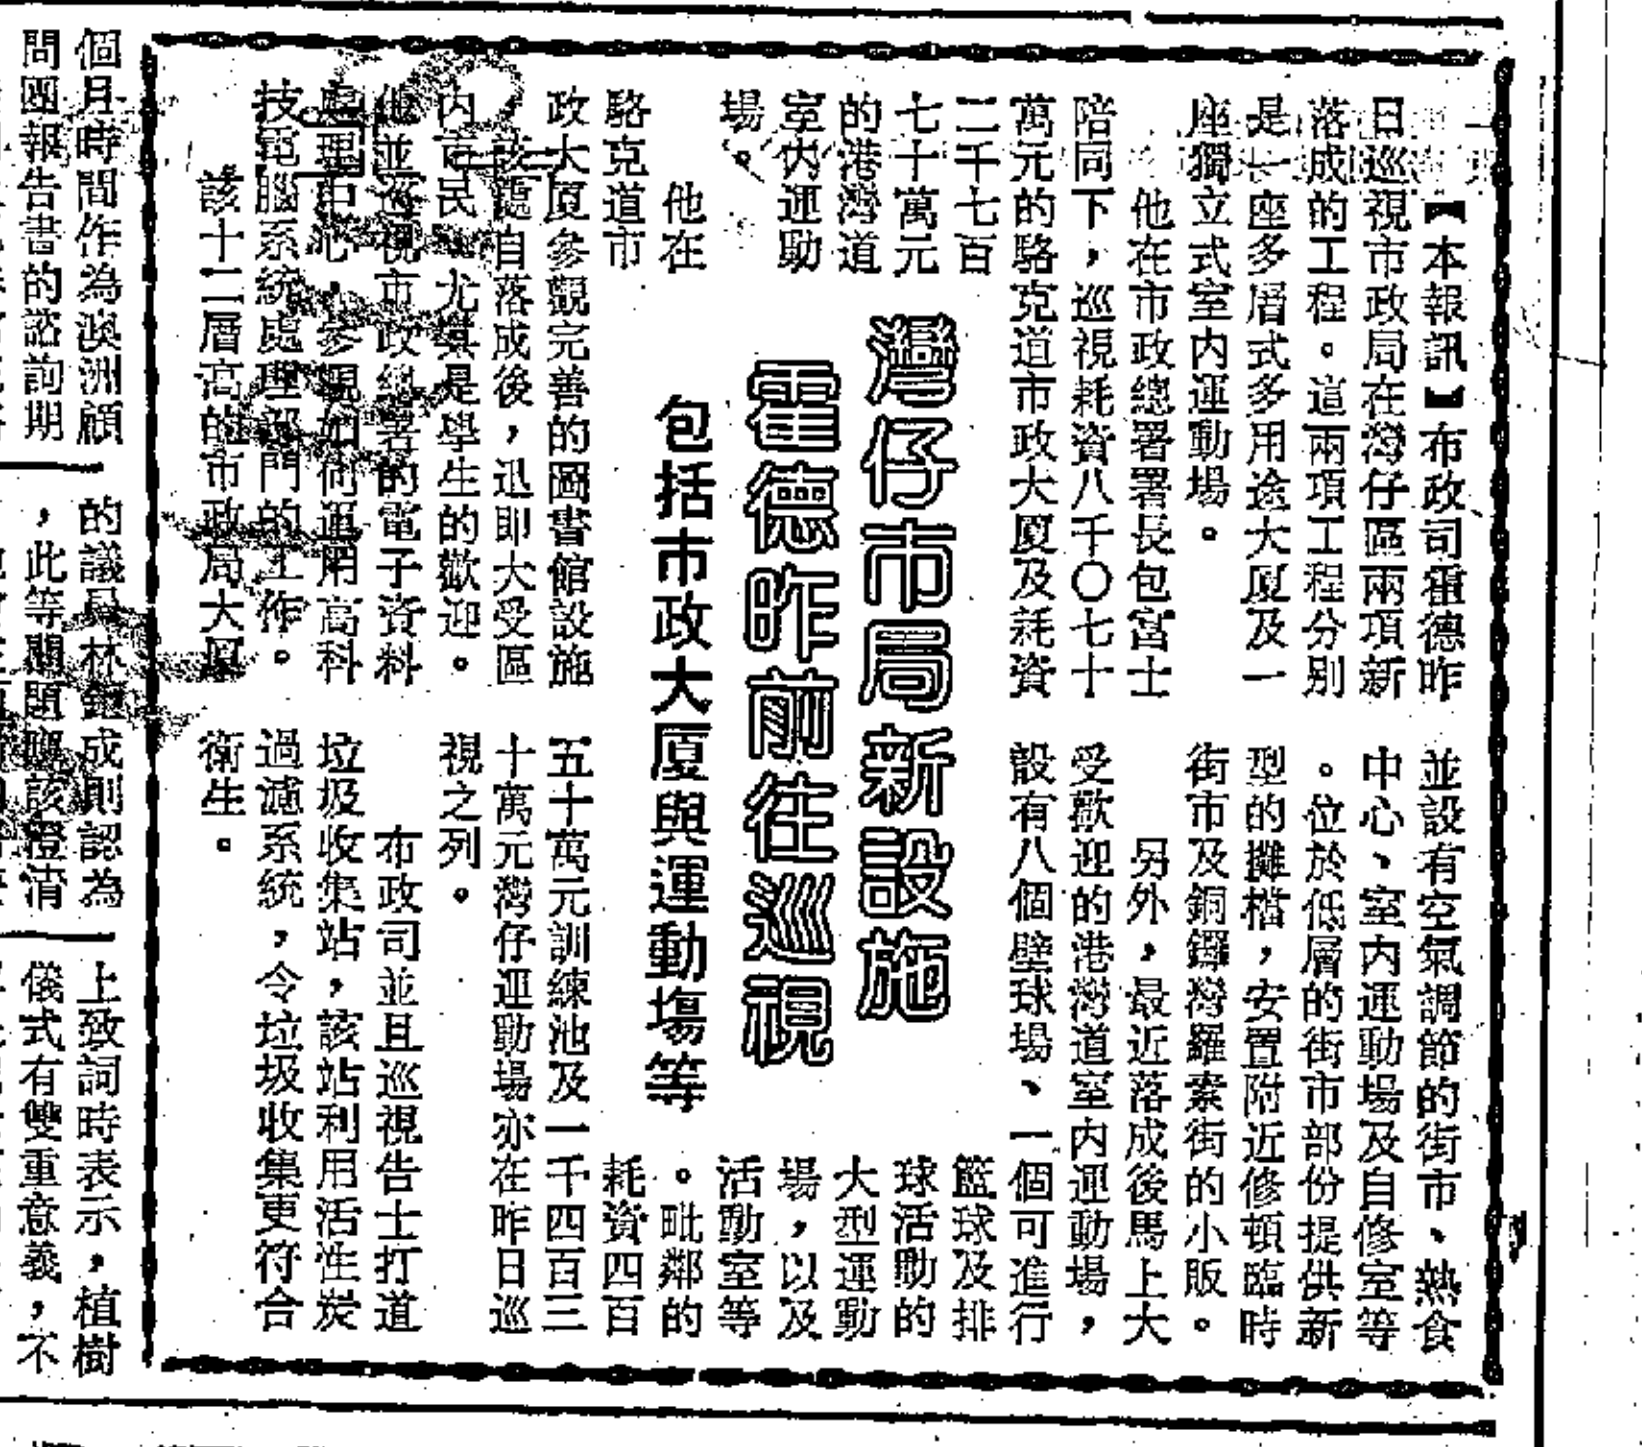 灣仔市局新設施
霍德昨前往巡視
包括市政大厦與運動場等
【本報訊】布政司霍德昨
日巡視市政局在灣仔區兩項新
落成的工程。這兩項工程分別
是一座多層式多用途大厦及一
座獨立式室內運動場。
他在市政總署署長包富士
陪同下，巡視耗資八千〇七十
萬元的駱克道市政大厦及耗資
二千七百
七十萬元
的港灣道
室內運動
場。
他在
駱克道市
政大厦參觀完善的圖書館設施
，該處自落成後，迅即大受區
內市民，尤其是學生的歡迎。
他並巡視市政總署的電子資料
處理中心，參觀如何運用高科
技電腦系統處理部門的工作。
該十二層高的市政局大厦
並設有空氣調節的街市、熱食
中心、室內運動場及自修室等
。位於低層的街市部份提供新
型的攤檔，安置附近修頓臨時
街市及銅鑼灣羅素街的小販。
另外，最近落成後馬上大
受歡迎的港灣道室內運動場，
設有八個壁球場、一個可進行
籃球及排
球活動的
大型運動
場，以及
活動室等
。毗鄰的
耗資四百
五十萬元訓練池及一千四百三
十萬元灣仔運動場亦在昨日巡
視之列。
布政司並且巡視告士打道
垃圾收集站，該站利用活性炭
過濾系統，令垃圾收集更符合
衛生。
個月時間作為澳洲顧
問團報告書的諮詢期
的議員林鉅成則認為
，此等問題應該澄清
上致詞時表示，植樹
儀式有雙重意義，不